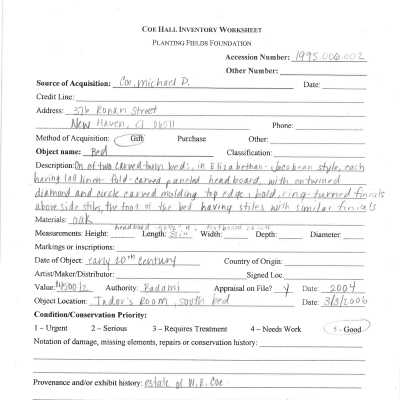 COE HALL INVENTORY WORKSHEET
PLANTING FIELDS FOUNDATION
Accession Number: 1995.006.002
Other Number:
Source of Acquisition: Coe, Michael D. Date:
Credit Line:
Address: 376 Ronan Street
New Haven, CT 06511 Phone:
Method of Acquisition: Gift Purchase Other:
Object name: Bed Classification:
Description: One of two carved twin beds, in Elizabethan-Jacobean style, each
having tall linen-fold-carved paneled headboard, with entwined
diamond and circle carved molding top edge; bold, ring turned finials
above side stiles, the foot of the bed having stiles with similar finials
Materials: oak
headboard
Measurements: Height: Length: Width: Depth: Diameter:
Markings or inscriptions:
Date of Object: early 20th century Country of Origin:
Artist/Maker/Distributor: Signed Loc.
Value: Authority: Radami Appraisal on File? Y Date: 2004
Object Location: Tudor's Room, south bed Date: 3/3/2006
Condition/Conservation Priority:
1 – Urgent 2 – Serious 3 – Requires Treatment 4 – Needs Work 5 - Good
Notation of damage, missing elements, repairs or conservation history:
Provenance and/or exhibit history: estate of W. R. Coe